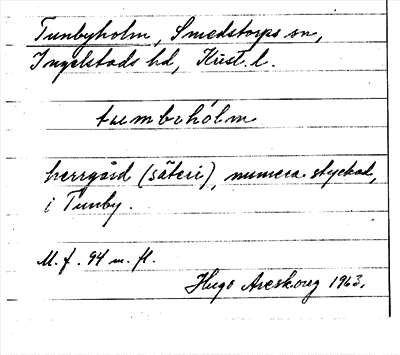 Tunbyholm, Smedstorps sn,
Ingelstads hd, Krist. l.
tumbrhólm
herrgård (säteri), numera styckad,
i Tunby.
M. f. 94 m. fl.
Hugo Areskoug 1963.